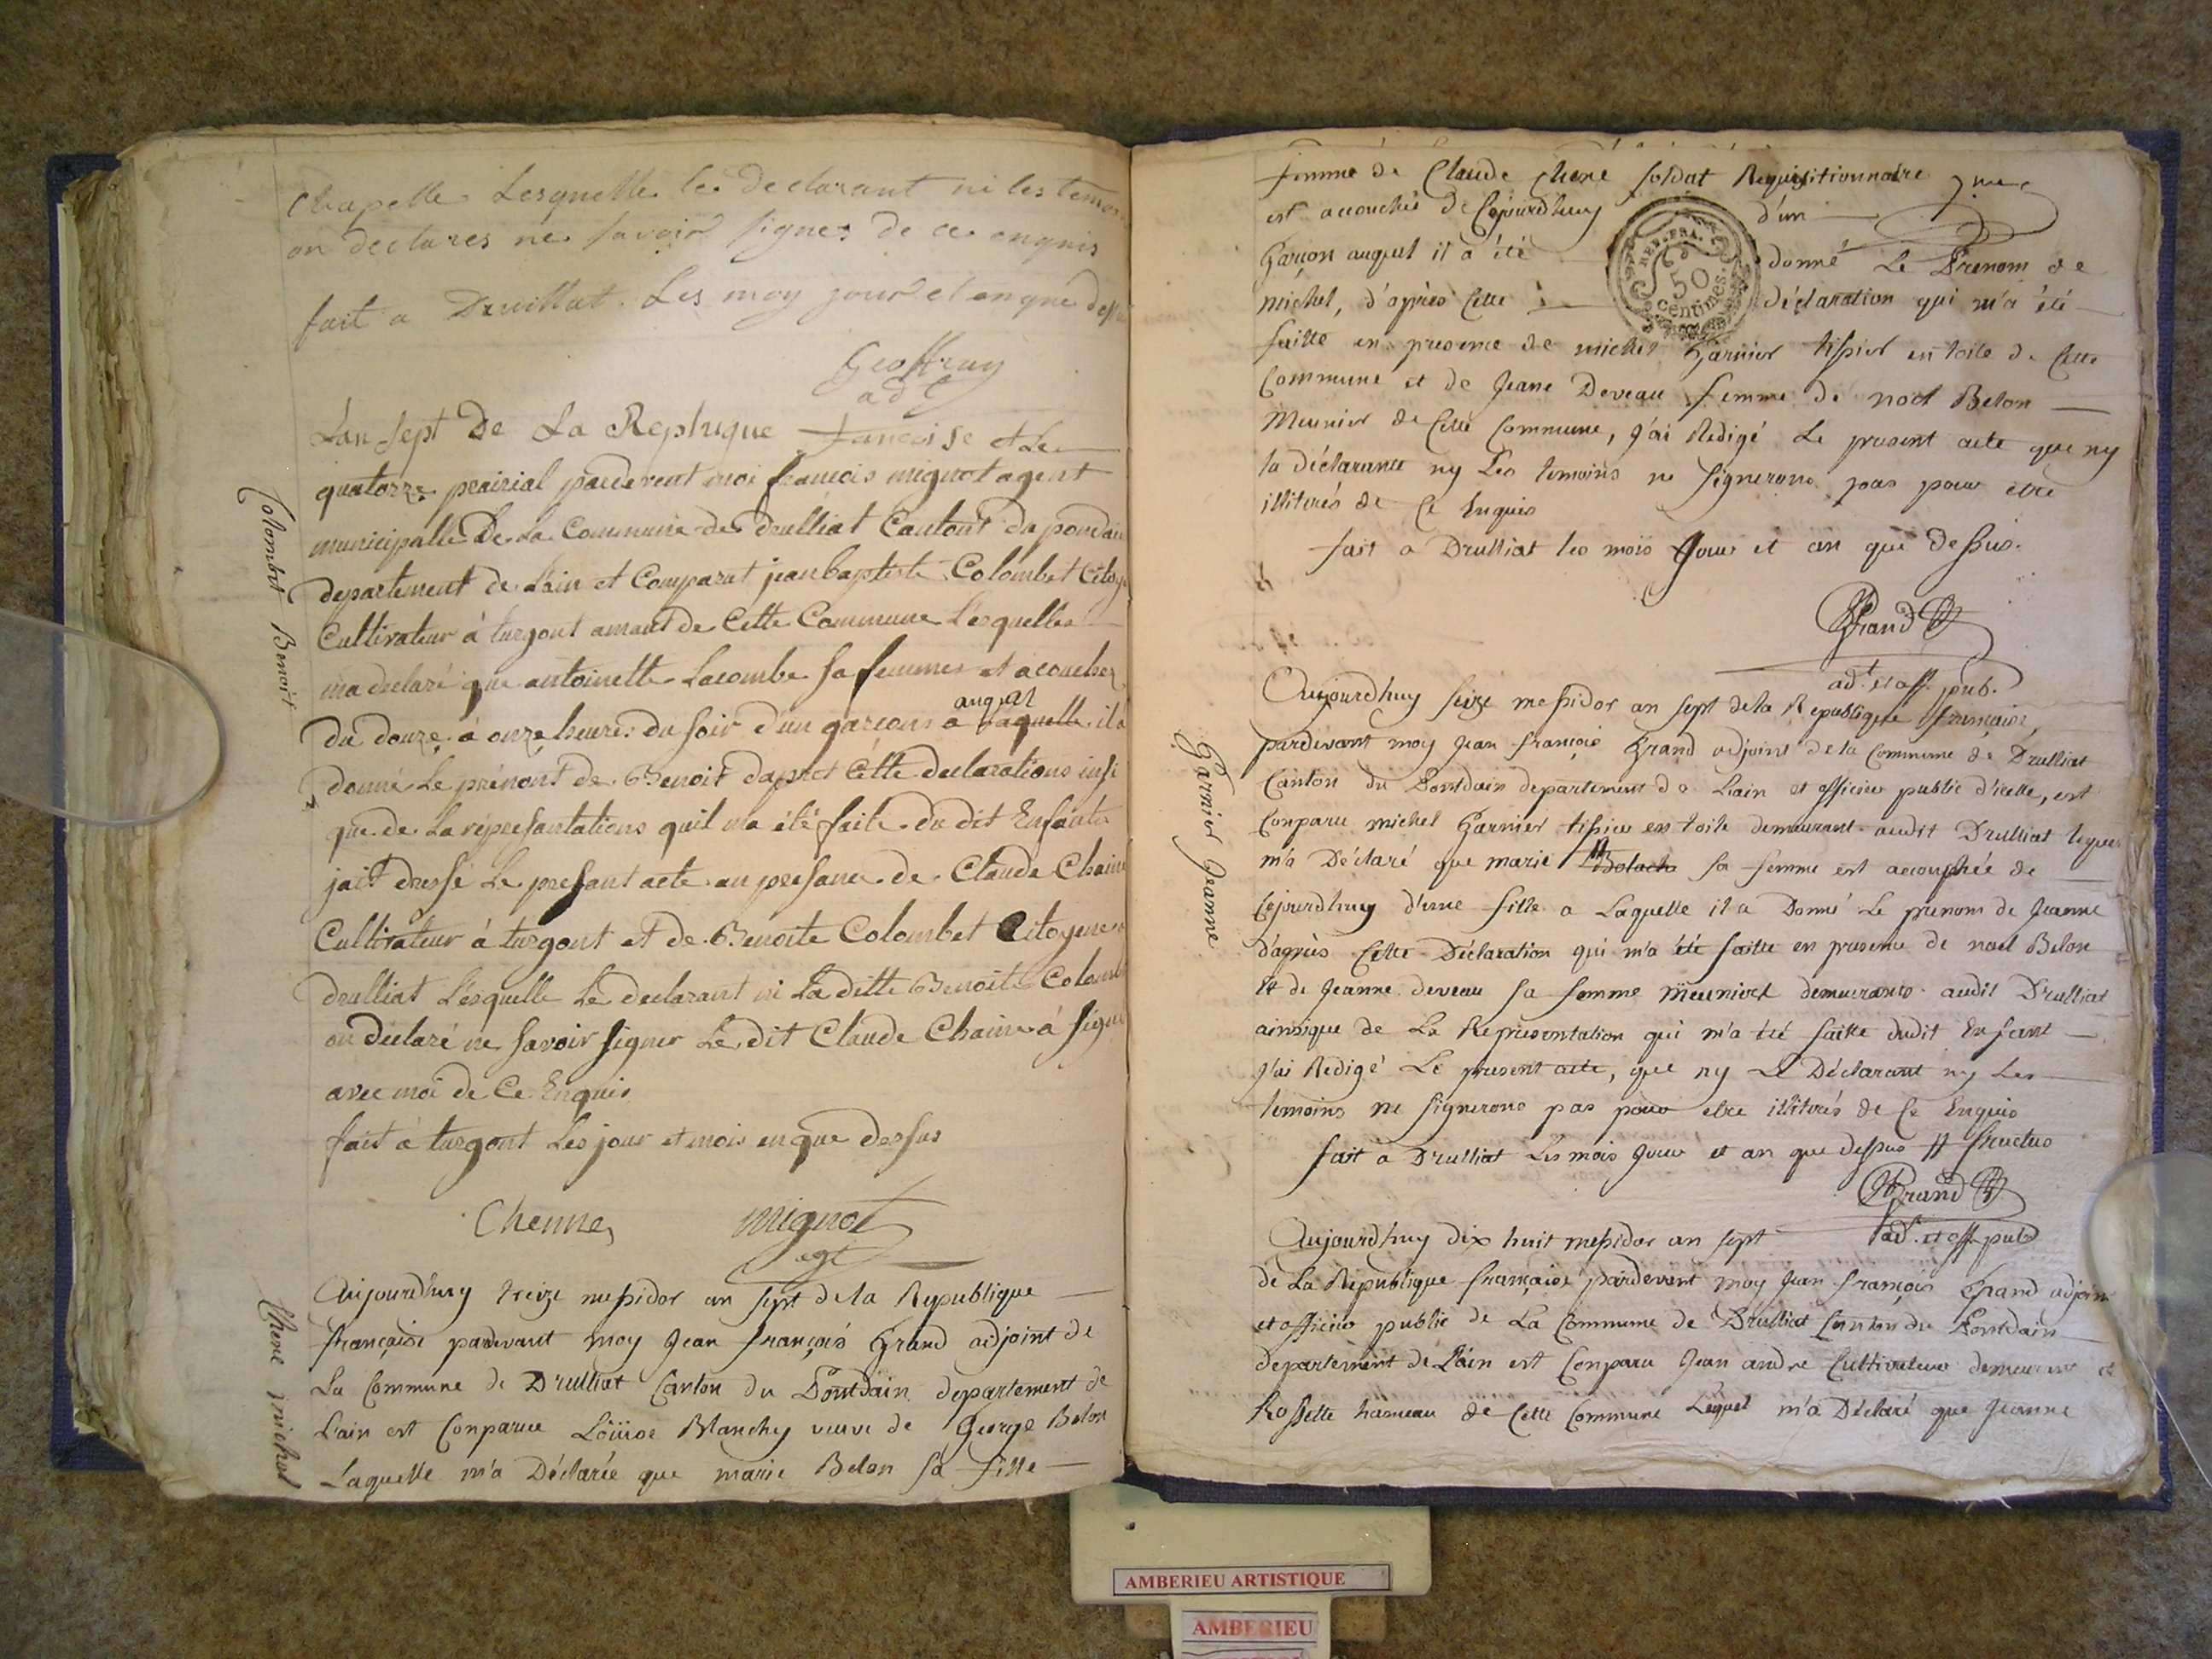 Chapelle Lesquelle le declarant ni les temoi
on declares ne savoir signer de ce enquis
fait a Druillat. Les moy jour et an que dessu
Geoffray
adt
Lan sept De La Replrique francoise et Le
quatorze prairial pardevent moi francois mignot agent
municipalle De La Commune de drulliat Cantont du pondain
departement de Lain et Comparut jean baptiste Colombet Citoy
Cultivateur à turgont amant de Cette Commune Lesquelles
ma declaré que antoinette Lacombe sa femmes et acouchez
du douze à onze heures du soir d'un garcons a laquelle il a
auquel
donné Le prénont de Benoit daprés Cette declarations insi
que de La represantations quil ma été faite du dit Enfants
jait dressé Le presant acte au presance de Claude Chaine
Cultivateur à turgont et de Benoite Colombet Citoyene
drulliat Lesquelle Le declarant ni La ditte Benoite Colomb
on declaré ne savoir signer Le dit Claude Chaine à signé
avec moi de Ce Enquis
fait à turgont Les jour et mois en que dessus
Chenne mignot
agt
Colombet Benoit
Aujourdhuy treize messidor an sept de la Republique
française pardevant moy Jean françois Grand adjoint de
La Commune de Drulliat Canton du Pontdain departement de
L'ain est Comparue Loüise Blanchy veuve de George Belon
Laquelle m'a Déclarée que marie Belon sa fille
Chene michel
femme de Claude Chene soldat Requisitionnaire
est accouchée de Cejourdhuy d'un
Garçon auquel il a été donné Le Prenom de
michel, d'après Cette déclaration qui m'a été
faitte en presence de michel Garnier tissier en toile de Cette
Commune et de Jeane Deveau femme de noel Belon
Meunier de Cette Commune, J'ai Redigé Le present acte que ny
la déclarante ny Les temoins ne signerons pas pour etre
illiterés de Ce Enquis
fait a Drulliat les mois Jour et an que dessus.
REP. FRA.
50
centimes.
Grand
adt. et off. pub.
Aujourdhuy seize messidor an sept de la Republique française,
pardevant moy Jean françois Grand adjoint de la Commune de Drulliat
Canton du Pontdain departement de L'ain et officier public d'icelle, est
Comparu michel Garnier tissier en toile demeurant audit Drulliat leque
m'a Déclaré que marie Bolache sa femme est accouchée de
Cejourdhuy d'une fille a Laquelle il a Donné Le prenom de Jeanne
d'après Cette Déclaration qui m'a été faitte en presence de noel Belon
et de Jeanne deveau sa femme meuniers demeurants audit Drulliat
ainsi que de La Representation qui m'a été faitte dudit Enfant
J'ai Redigé Le present acte, que ny Le Déclarant ny Les
temoins ne signerons pas pour etre illiterés de Ce Enquis
fait à Drulliat Les mois Jour et an que dessus
Grand
adt. et off. pub.
Garnier Jeanne
Aujourdhuy dix huit messidor an sept
de La République française pardevant moy Jean françois Grand adjoin
et officier public de La Commune de Drulliat Canton du Pontdain
departement de L'ain est Comparu Jean andre Cultivateur demeurant
Rossette hameau de Cette Commune Lequel m'a Déclaré que Jeanne
AMBERIEU ARTISTIQUE
AMBERIEU